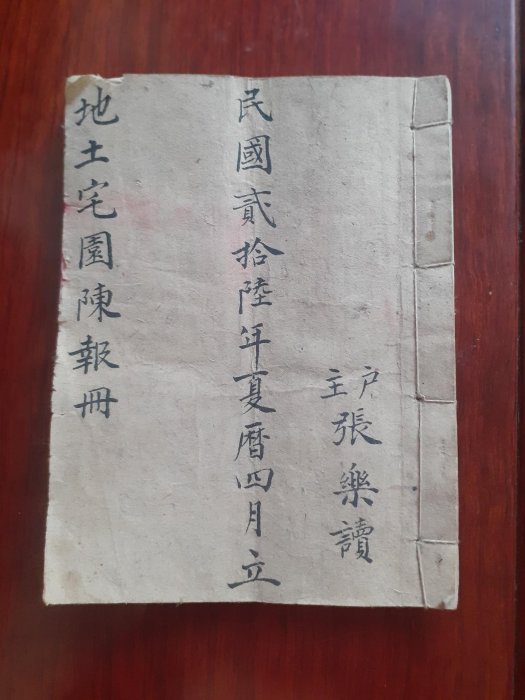 户主張樂讀
民國貳拾陸年夏曆四月立
地土宅園陳報冊